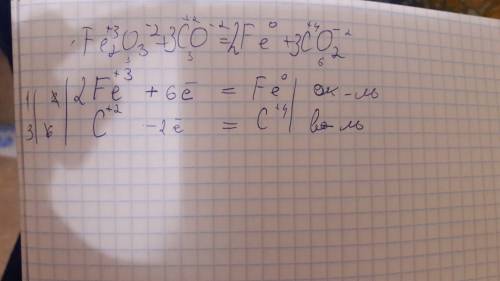 Fe₂⁺³O₃⁻² + 3C⁺²O⁻² = 2Fe⁰ + 3C⁺⁴O₂⁻²
1 | 2 | 2Fe⁺³ + 6ē = Fe⁰ | ок-ль
3 | 6 | C⁺² - 2ē = C⁺⁴ | во-ль